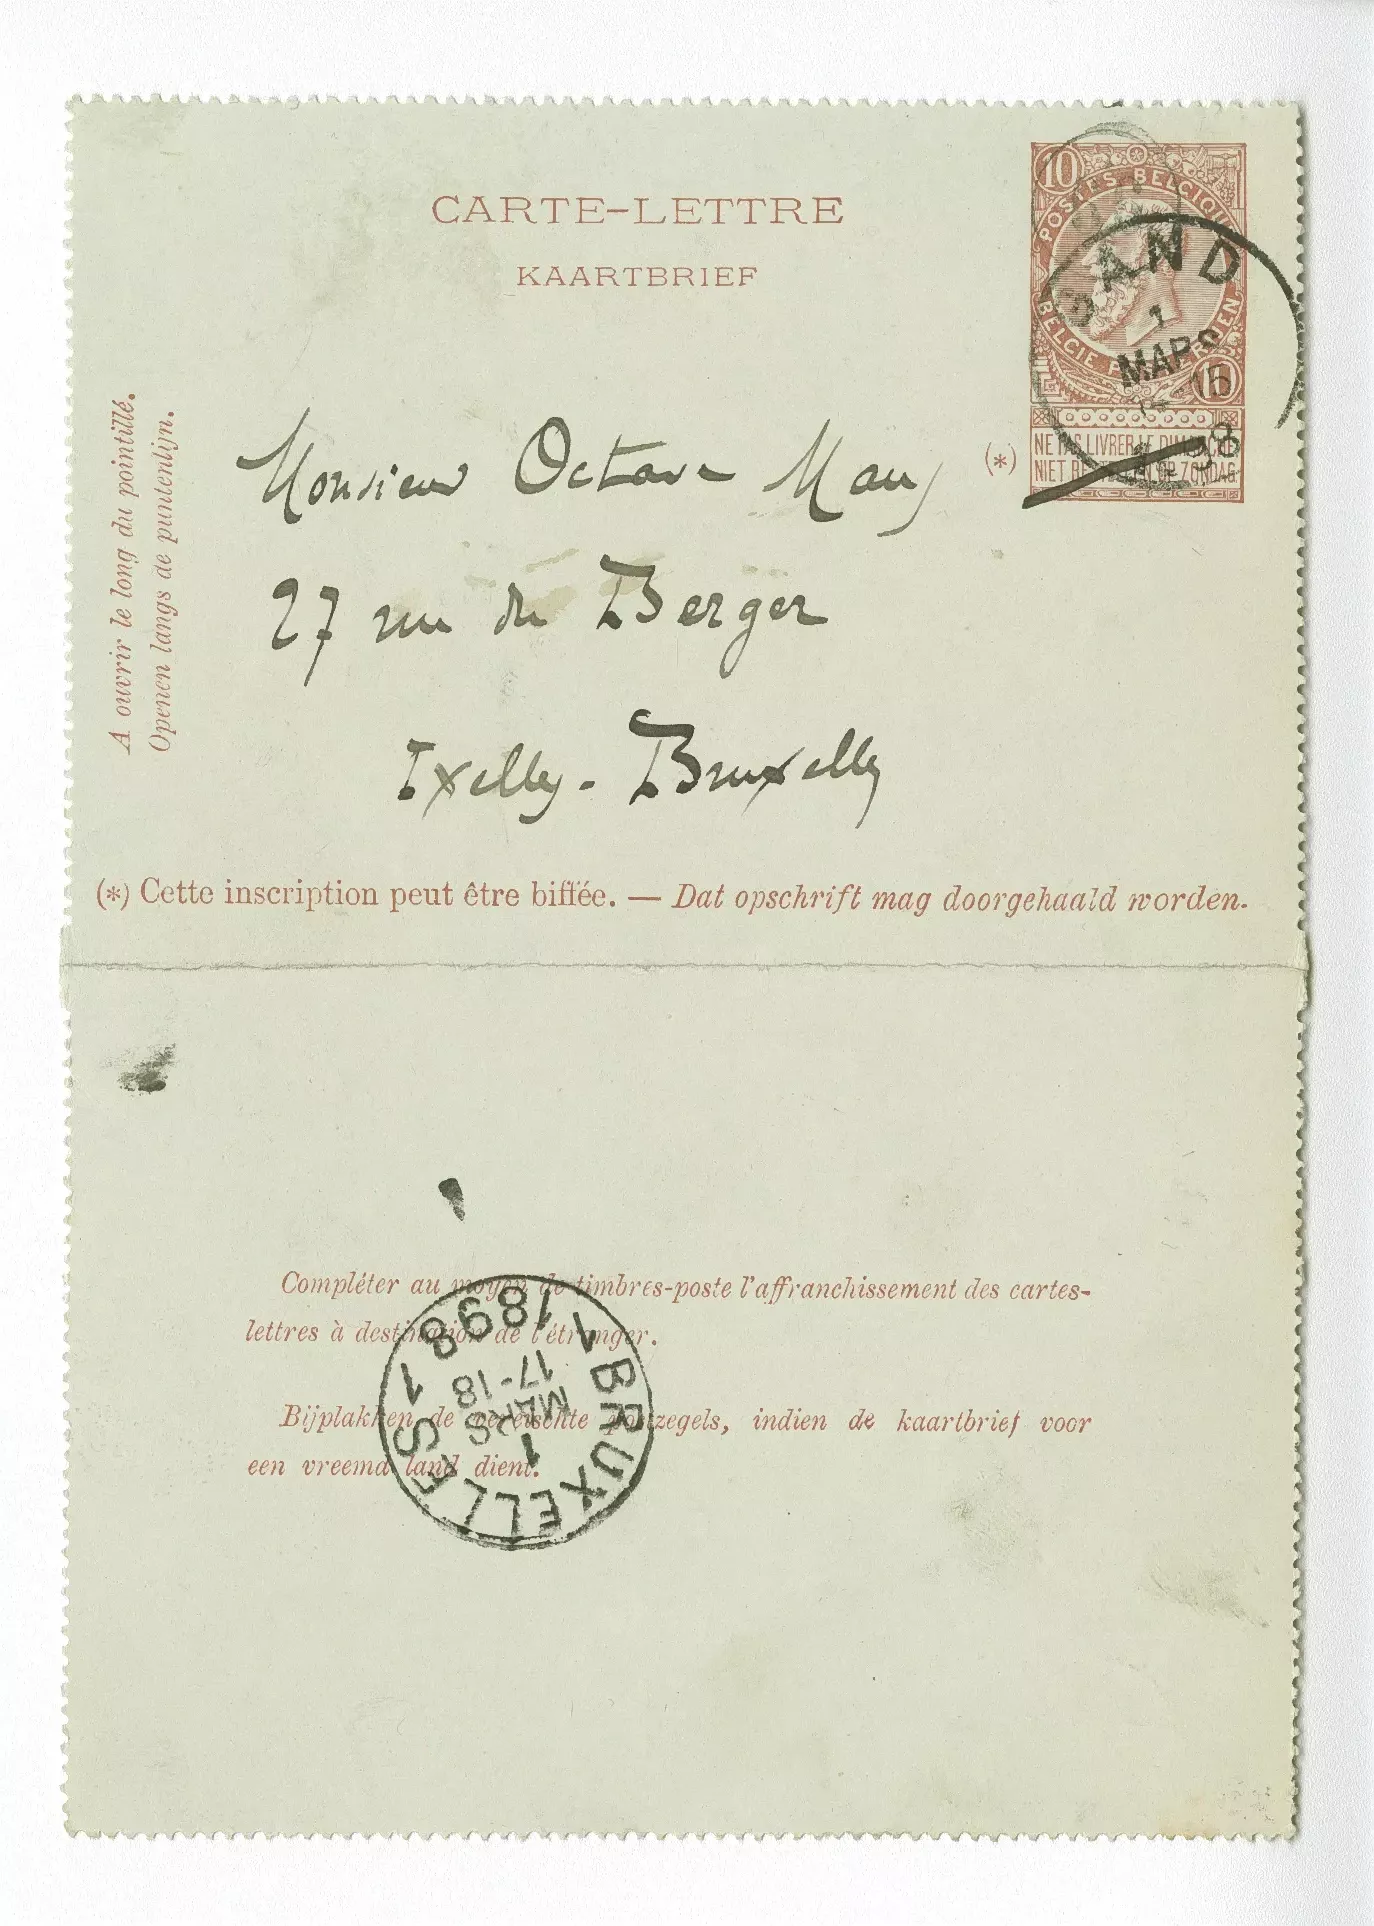 CARTE-LETTRE
KAARTBRIEF
10
POSTES BELGIQUE
BELGIE
10
NE PAS LIVRER LE DIMANCHE
NIET OP ZONDAG
GAND
1
MARS
(*)
A ouvrir le long du pointillé.
Openen langs de puntenlijn.
Monsieur Octave Maus
27 rue du Berger
Ixelles - Bruxelles
(*) Cette inscription peut être biffée. — Dat opschrift mag doorgehaald worden.
Compléter au moyen de timbres-poste l'affranchissement des cartes-
lettres à destination de l'étranger.
Bijplakken de vereischte postzegels, indien de kaartbrief voor
een vreemd land dient.
1 BRUXELLES 1
1
MARS
17-18
1898